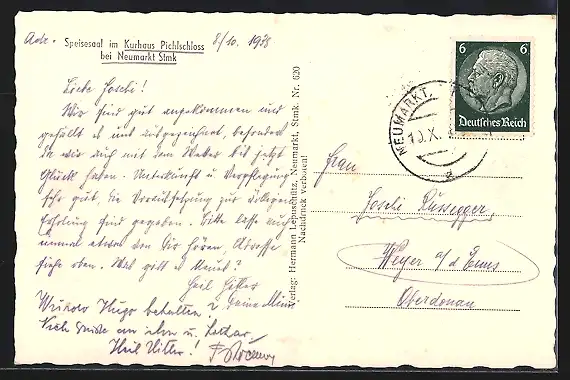 Adr.
8/10. 1938
Speisesaal im Kurhaus Pichlschloss
bei Neumarkt Stmk
Liebe Joschi!
Wir sind gut angekommen und
gefällt es uns ausgezeichnet, besonders
da wir auch mit dem Wetter bis jetzt
Glück haben. Unterkunft u. Verpflegung
sehr gut, die Voraussetzung zur völligen
Erholung sind gegeben. Bitte lasse auch
einmal etwas von Dir hören Adresse
siehe oben. Was gibt es Neues?
Heil Hitler
Deine Minna
Hugo behalten
Viele Grüße an ihn u.
Heil Hitler!
Verlag: Hermann Lepuschütz, Neumarkt, Stmk. Nr. 620
Nachdruck verboten!
6 6
Deutsches Reich
NEUMARKT
10.X.
a
Frau
Joschi Russegger
Weyer a/d Enns
Oberdonau